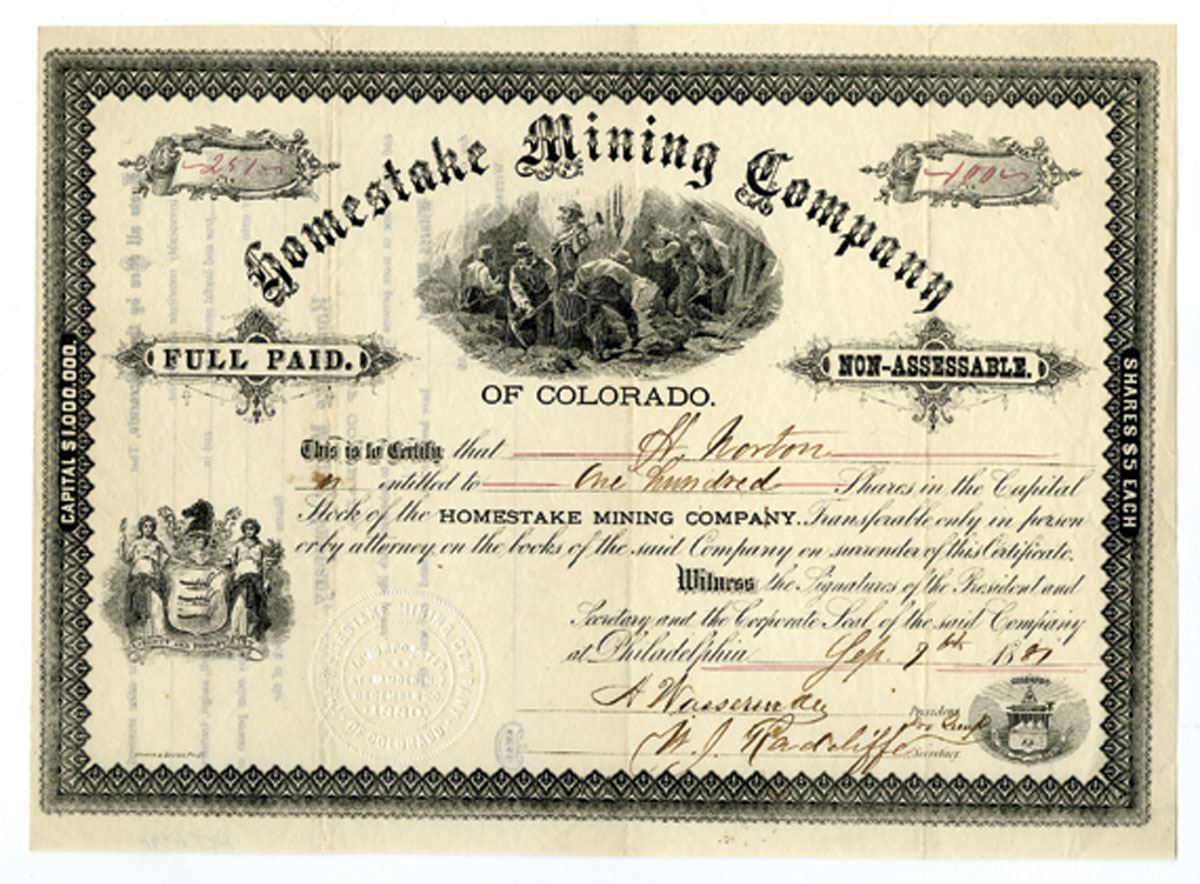 251
100
Homestake Mining Company
FULL PAID.
NON-ASSESSABLE.
OF COLORADO.
CAPITAL $1,000,000.
SHARES $5 EACH
This is to Certify that H. Norton
is entitled to One Hundred Shares in the Capital
Stock of the HOMESTAKE MINING COMPANY. Transferable only in person
or by attorney, on the books of the said Company on surrender of this Certificate.
Witness the Signatures of the President and
Secretary and the Corporate Seal of the said Company
at Philadelphia Sep. 9th 1881
President
W. J. Radcliffe Secretary
HOMESTAKE MINING COMPANY
INCORPORATED
DECEMBER
1880
OF COLORADO